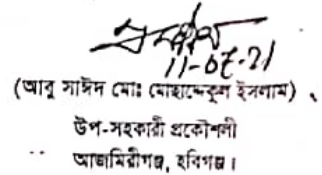 11-07-21
(আবু সাঈদ মোঃ মোহাদ্দেকুল ইসলাম)
উপ-সহকারী প্রকৌশলী
আজমিরীগঞ্জ, হবিগঞ্জ।